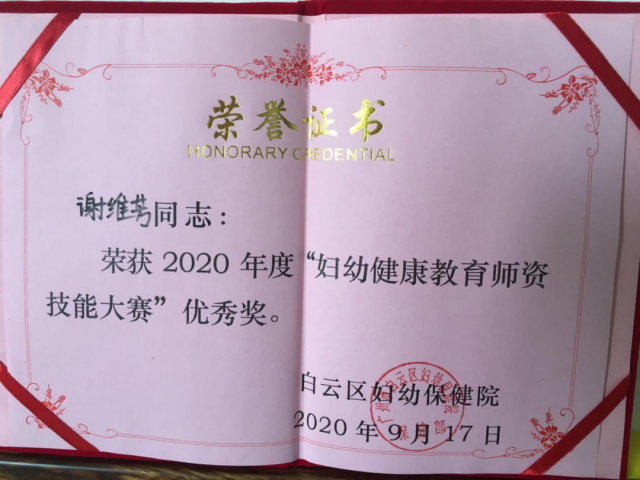 荣誉证书
HONORARY CREDENTIAL
谢维芳同志：
荣获 2020 年度“妇幼健康教育师资
技能大赛”优秀奖。
白云区妇幼保健院
2020 年 9 月 17 日